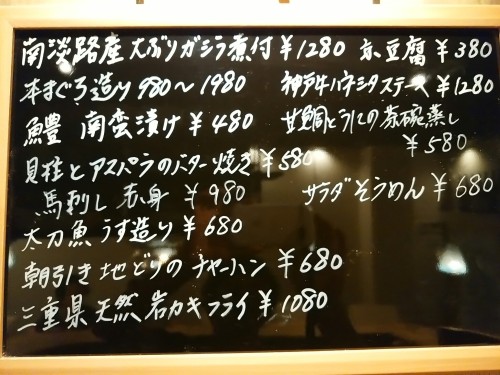 南淡路産 大ぶりガシラ煮付 ¥1280
本まぐろ造り 980～1980
鱧 南蛮漬け ¥480
貝柱とアスパラのバター焼き ¥580
馬刺し 赤身 ¥980
太刀魚 うす造り ¥680
朝引き 地どりの チャーハン ¥680
三重県 天然 岩カキフライ ¥1080
京豆腐 ¥380
神戸牛ハネシタステーキ ¥1280
甘鯛とうにの茶碗蒸し
¥580
サラダそうめん ¥680